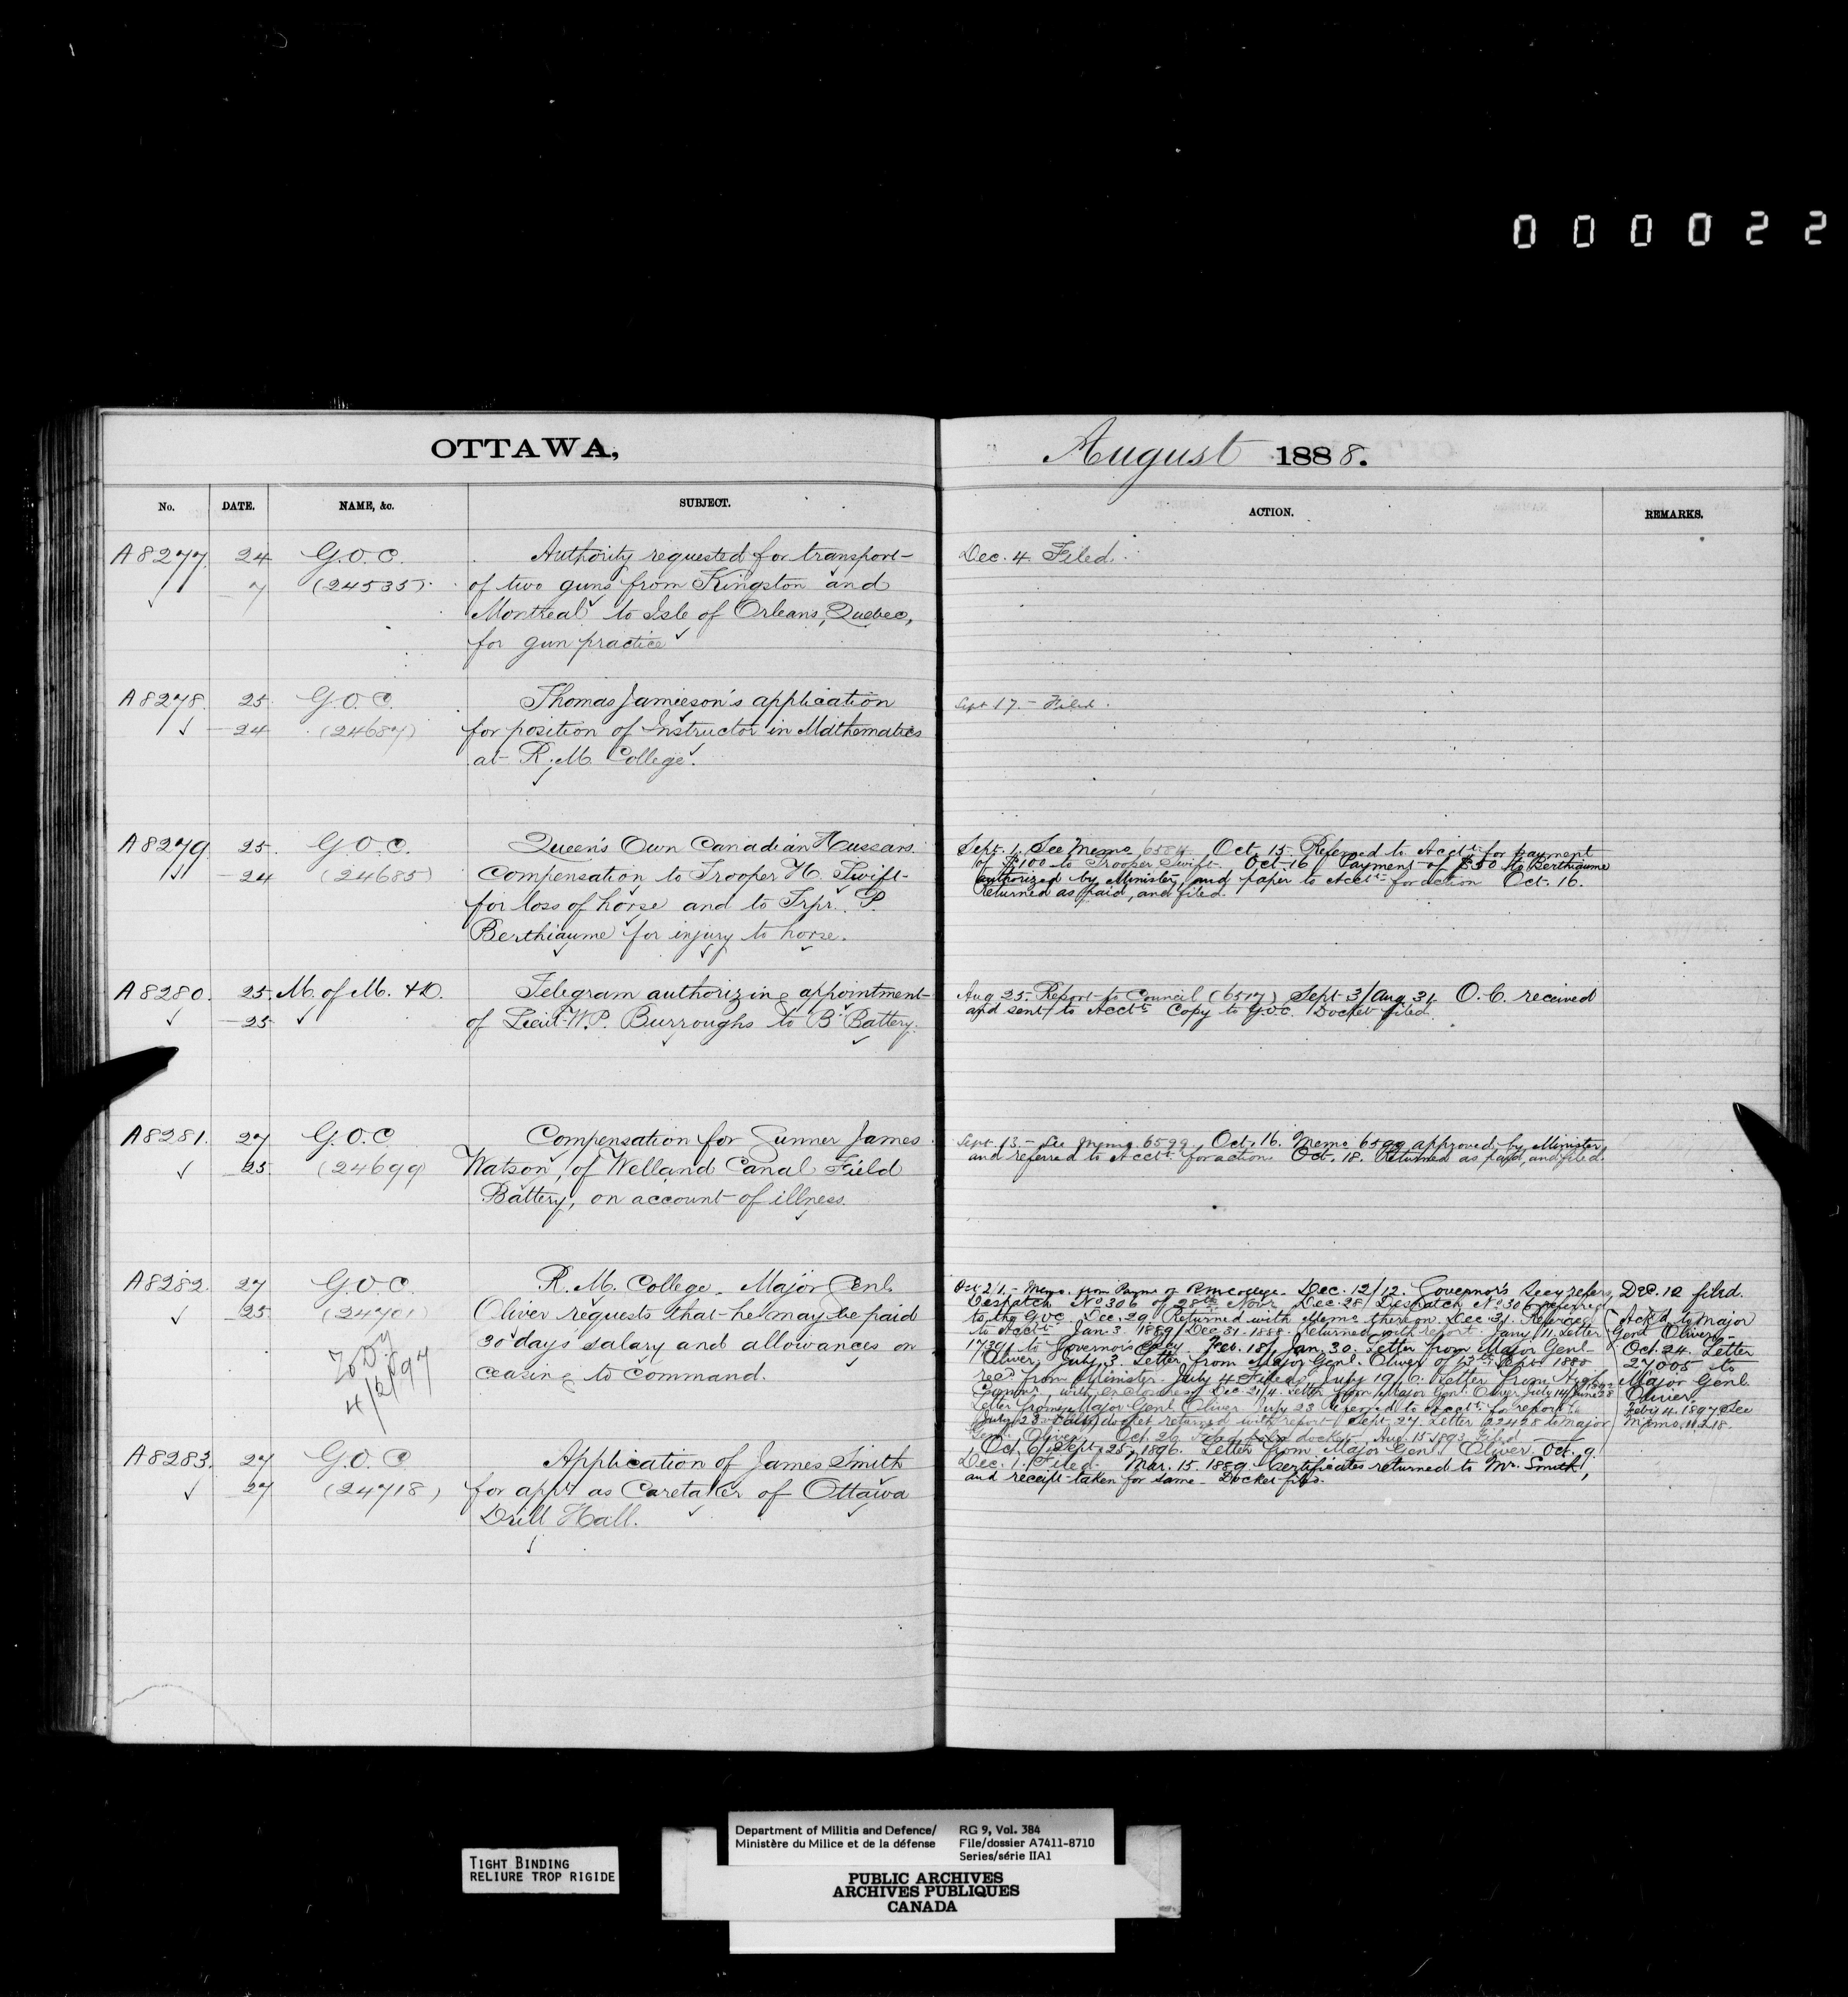 000022
OTTAWA,
August 1888.
No. DATE. NAME, &c. SUBJECT.
ACTION. REMARKS.
A8277. 24 G.O.C. Authority requested for transport
7 (24535). of two guns from Kingston and
Montreal to Isle of Orleans, Quebec,
for gun practice
Dec. 4 Filed.
A8278. 25 G.O.C. Thomas Jamieson's application
24 (24687) for position of Instructor in Mathematics
at R.M. College.
Sept 17. - Filed.
A8279. 25. G.O.C. Queen's Own Canadian Hussars.
24 (24685) Compensation to Trooper H. Swift
for loss of horse and to Trpr. P.
Berthiaume for injury to horse.
Sept. 1. See Memo 6584 Oct. 15. Referred to Acctt. for payment
of $100 to Trooper Swift. Oct. 16/ Payment of $50 to Berthiaume
authorized by Minister, and paper to Acctt. for action Oct. 16.
Returned as paid, and filed.
A8280. 25. M. of M. & D. Telegram authorizing appointment
25 of Lieut. W.P. Burroughs to B Battery.
Aug 25. Report to Council (6517) Sept. 3/Aug 31. O.C. received
and sent to Acctt. Copy to G.O.C. Docket filed.
A8281. 27 G.O.C. Compensation for Gunner James
25 (24699) Watson, of Welland Canal Field
Battery, on account of illness.
Sept. 13. - See Memo. 6599. Oct. 16. Memo 6599 approved by Minister,
and referred to Acctt. for action. Oct. 18. Returned as paid, and filed.
A8282. 27 G.O.C. R. M. College. Major Genl.
25 (24701) Oliver requests that he may be paid
30 days salary and allowances on
ceasing to command.
4/2/97
Oct 21. - Memo. from Paymr of RM College. Dec. 12/12. Governor's Secy refers
Despatch No 306 of 28th Novr. Dec. 28 Despatch No 306 referred
to the G.O.C. Dec. 29 Returned with Memo thereon. Dec 31. Referred
to Acctt. Jan 3 1889/Dec 31 1888. Returned with report. Jany 11. Letter
17391 to Governor's Secy. Feb. 18/Jan. 30. Letter from Major Genl
Oliver. July 3. Letter from Major Genl. Oliver of 13th Sept 1888
recd from Minister. July 4 Filed. July 19/6. Letter from High
Commr, with enclosures of Dec. 21/4. Letter from Major Genl. Oliver. July 14/June 28
Letter from Major Genl Oliver July 23 Referred to Acctt. for report
July 23 docket returned with report. Sept. 27. Letter 22428 to Major
Genl. Oliver. Oct. 26 docket. Aug. 15 1893 Filed
Oct. 6/Sept. 25, 1896. Letter from Major Genl. Oliver. Oct. 9.
Dec. 12 filed.
Ack'd to Major
Genl Oliver
Oct. 24. Letter
27005 to
Major Genl.
Oliver
Feby 4. 1897 See
Memo 11218.
A8283. 27 G.O.C. Application of James Smith
27 (24718) for appt as Caretaker of Ottawa
Drill Hall.
Dec. 1. Filed. Mar. 15. 1889. Certificates returned to Mr. Smith,
and receipt taken for same. Docket filed.
TIGHT BINDING
RELIURE TROP RIGIDE
Department of Militia and Defence/
Ministère du Milice et de la défense
RG 9, Vol. 384
File/dossier A7411-8710
Series/série IIA1
PUBLIC ARCHIVES
ARCHIVES PUBLIQUES
CANADA